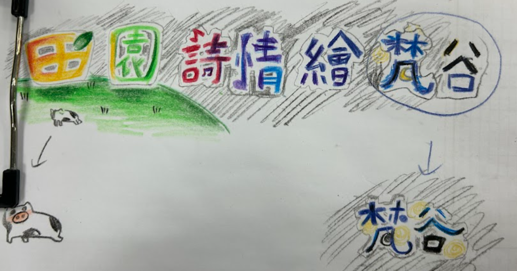 田園詩情繪梵谷
梵谷